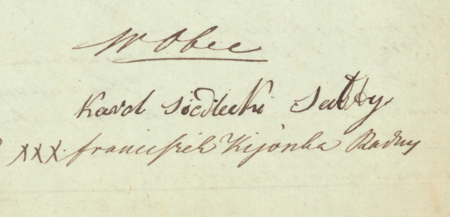 W Obec
Karol Siedlecki Sołtys
XXX franciszek Kijonka Radny